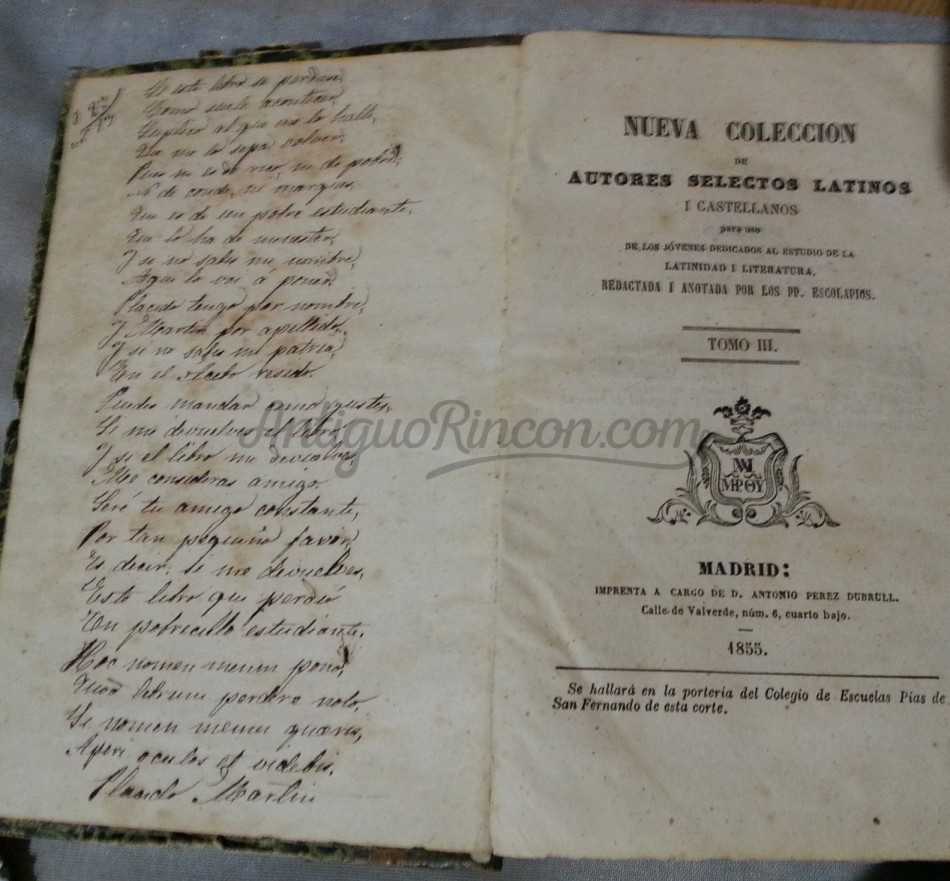 Si este libro se perdiese,
Como suele acontecer,
Suplico al que me lo halle,
Que me lo sepa volver.
Que no es de rico, ni de
N. de conde, ni marques,
Que es de un pobre estudiante,
Que lo ha de menester,
Y si no sabes mi nombre,
Aqui lo voi á poner.
Placido tengo por nombre,
Y Martin por apellido,
Y si no sabes mi patria,
En el resido.
Puedes mandar como gustes,
Si me devuelves el libro
Y si el libro me devuelves
Me consideras amigo
Seré tu amigo constante,
Por tan pequeño favor,
Es decir, si me devuelves,
Este libro que perdió
Un pobrecillo estudiante.
Hoc nomen meum pono,
Quia librum perdere nolo,
Si nomen meum quæris,
Aperi oculos et videbis.
Placido Martin
NUEVA COLECCION
DE
AUTORES SELECTOS LATINOS
I CASTELLANOS
para uso
DE LOS JÓVENES DEDICADOS AL ESTUDIO DE LA
LATINIDAD I LITERATURA,
REDACTADA I ANOTADA POR LOS PP. ESCOLAPIOS.
TOMO III.
MADRID:
IMPRENTA A CARGO DE D. ANTONIO PEREZ DUBRULL.
Calle de Valverde, núm. 6, cuarto bajo.
1855.
Se hallará en la portería del Colegio de Escuelas Pias de
San Fernando de esta corte.
AntiguoRincon.com